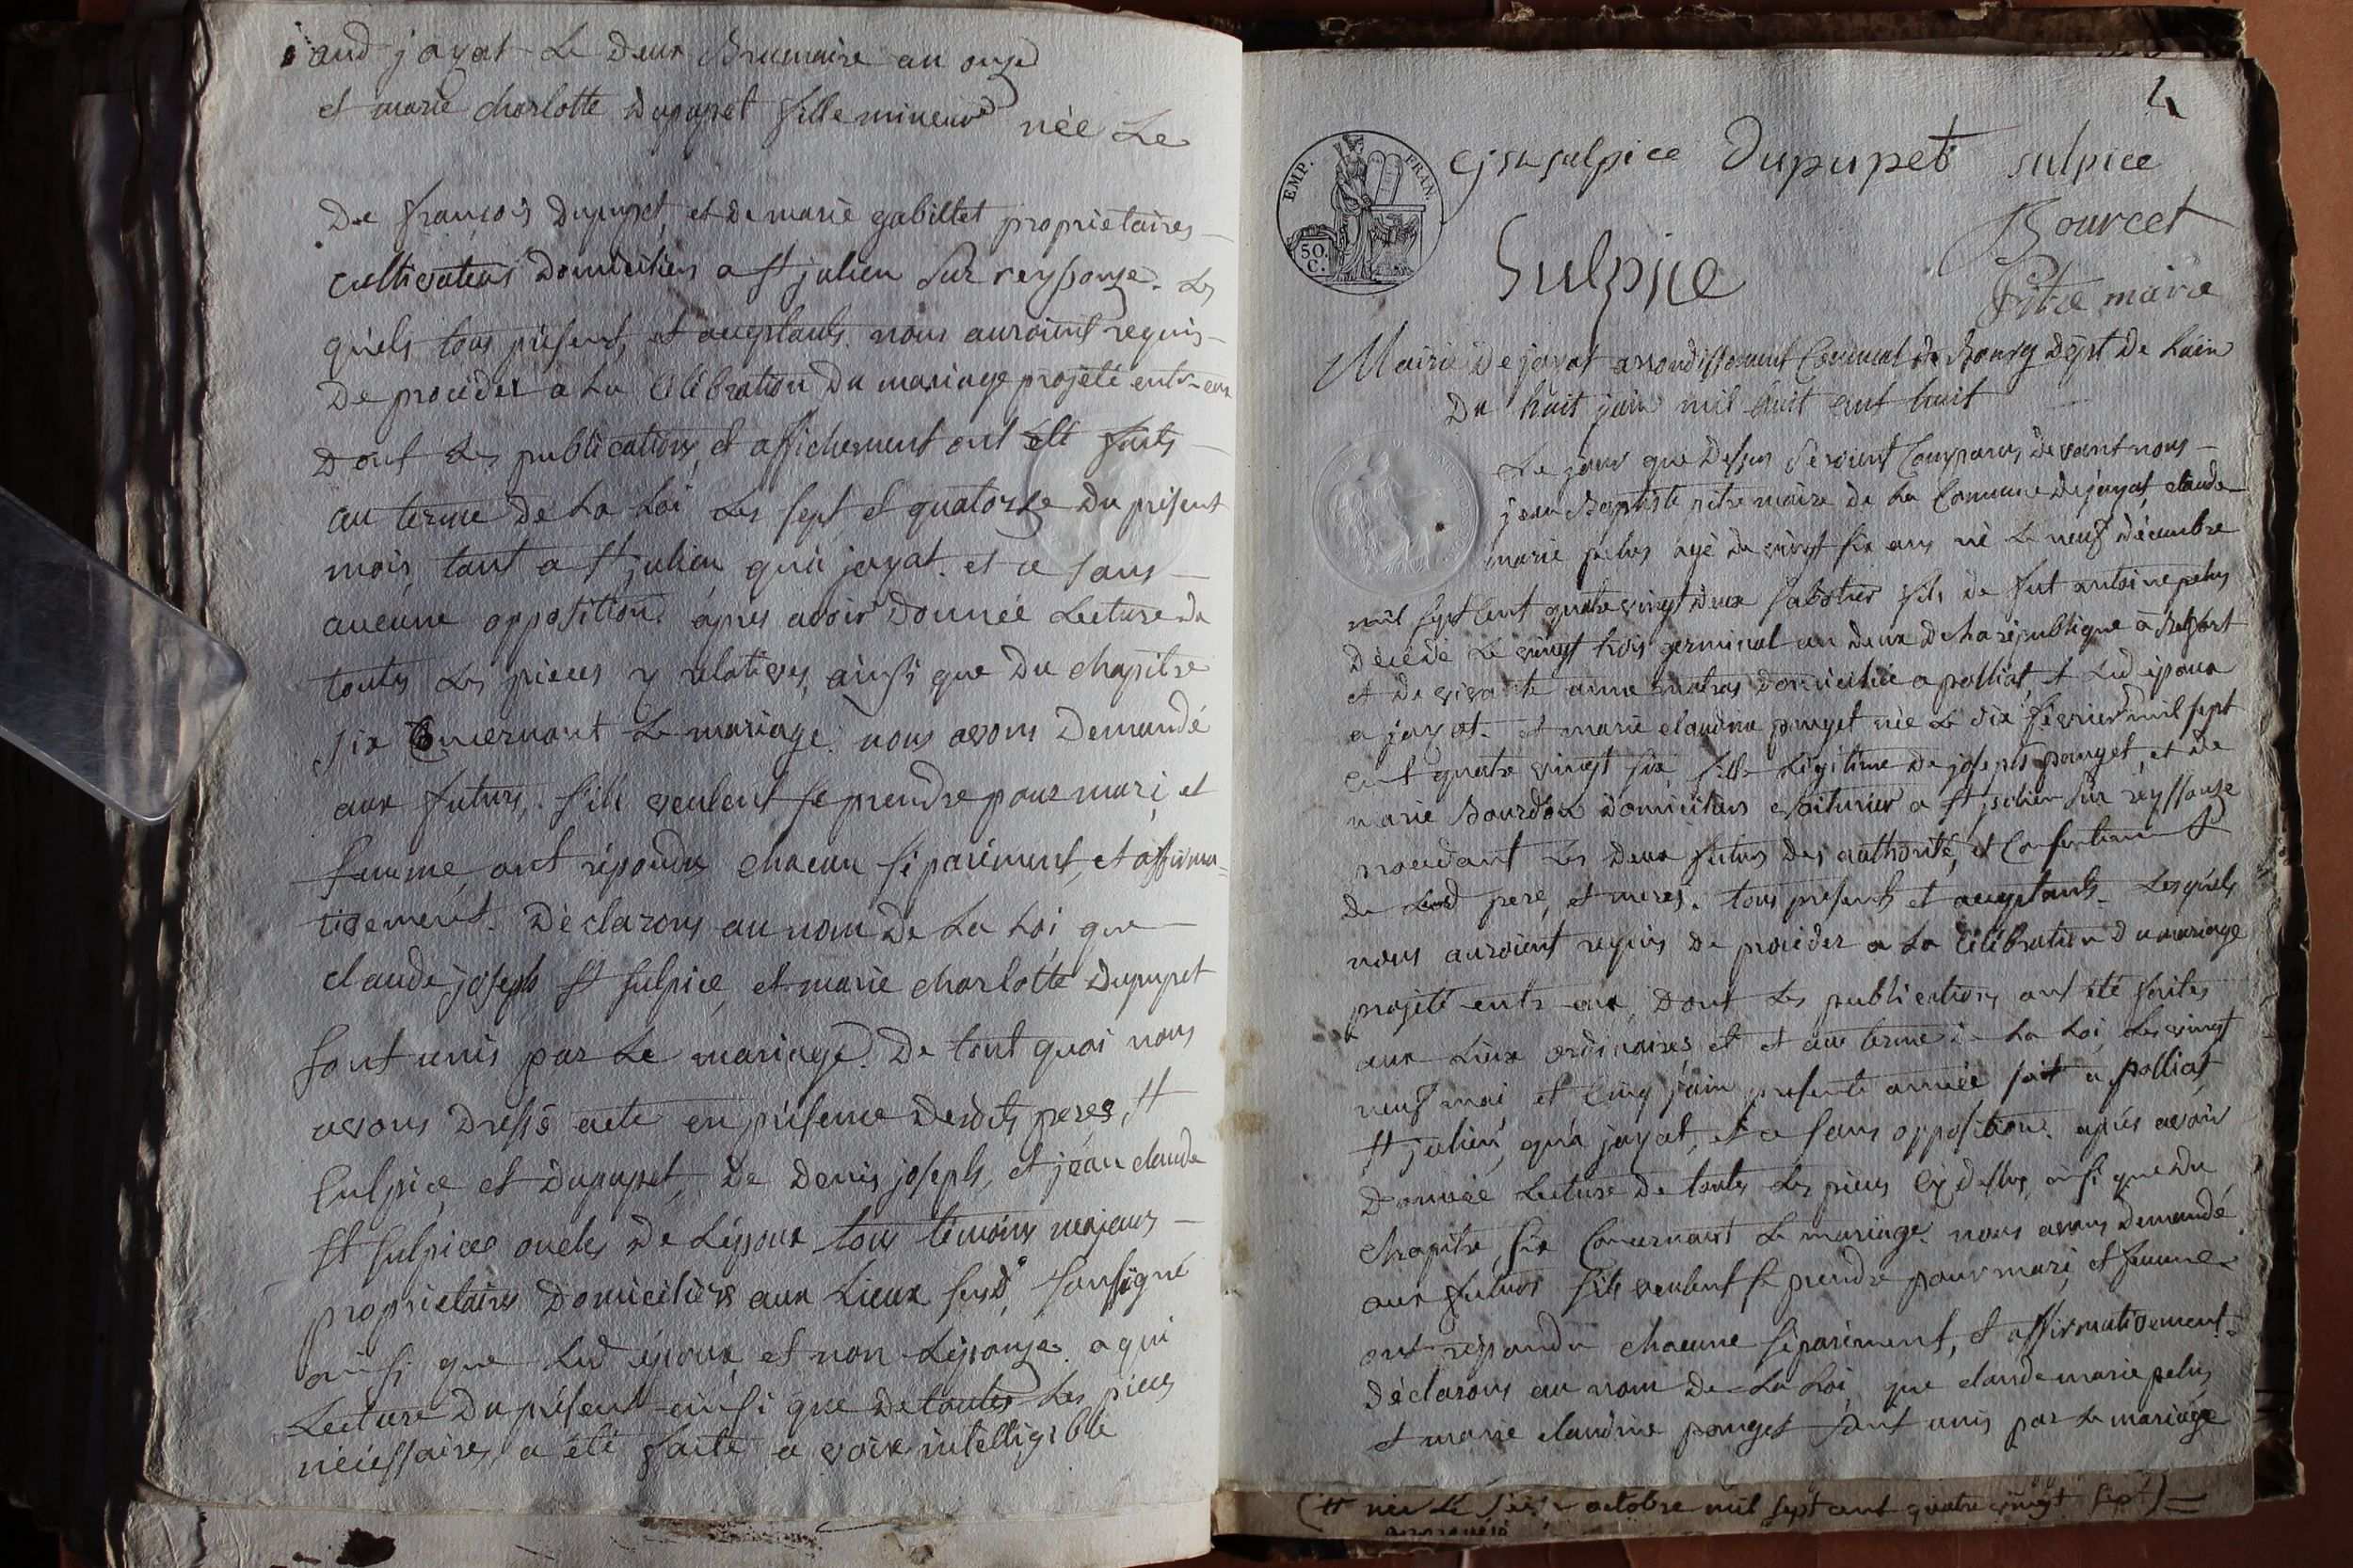 aud jayat Le Deux Brumaire an onze
et marie charlotte Dupupet fille mineure née Le
De françois Dupupet, et De marie gabillet propriétaires
cultivateurs Domiciliés a St julien Sur reyssouze. Les
quels tous présents, et acceptants nous auroient requis
De procéder à La Célébration Du mariage projetté entr-eux
Dont Les publications, et affichement ont été faits
au terme De La Loi Les sept et quatorze Du présent
mois, tant a St julien qu'à jayat. et ce sans
aucune opposition. après avoir Donnée Lecture De
toutes Les pieces y relatives, ainsi que Du chapitre
six Concernant Le mariage. nous avons Demandé
aux futurs, s'ils veulent se prendre pour mari, et
femme, ont répondu chacun séparément, et affirma=
tivement. Déclarons au nom De La Loi, que
claude joseph St sulpice, et marie charlotte Dupupet
sont unis par Le mariage. De tout quoi nous
avons Dressé acte en présence Desdits peres, St
Sulpice, et Dupupet, De Denis joseph, et jean claude
St sulpice oncles De L'époux tous témoins majeurs
propriétaires Domiciliés aux Lieux susd, soussigné
ainsi que Led époux et non L'épouse. a qui
Lecture Du présent ainsi que De toutes Les pieces
nécessaires, a été faite a voix intelligible
4
EMP. FRAN.
50. C.
cj st sulpice Dupupet sulpice
Bourcet
Sulpice
Pitre maire
Mairie De jayat arrondissement Communal de Bourg Dépt De Lain
Du huit juin mil huit cent huit
Le jour que Dessus Seroient Comparus Devant nous
jean Baptiste pitre maire De La Commune De jayat, claude
marie pelus agé De vingt six ans né Le neuf décembre
mil sept cent quatre vingt Deux sabotier fils De fut antoine pelus
Décédé Le vingt trois germinal an Deux De La république à Belfort
et De vivante anne matras domiciliée a polliat, et Led époux
a jayat. et marie claudine pauget née Le dix février mil sept
cent quatre vingt six fille Légitime De joseph pauget, et De
marie Bourdon Domiciliés voiturier a St julien sur reyssouze
procedant Les Deux futurs Des authorité, et Consentement
De Leurd pere, et meres. tous présents et acceptants. Lesquels
nous auroient requis De procéder a La Célébration Du mariage
projetté entr-eux, Dont Les publications ont été faites
aux Lieux ordinaires et et aux terme De La Loi, Les vingt
neuf mai et Cinq juin presente année soit a polliat,
St julien, qu'a jayat, et ce sans opposition. après avoir
Donnée Lecture De toutes Les pieces Cy Dessus, ainsi que Du
Chapitre six Concernant Le mariage. nous avons Demandé
aux futurs s'ils veulent se prendre pour mari, et femme
ont répondu chacune séparément, et affirmativement.
Déclarons au nom De La Loi, que claude marie pelus,
et marie claudine pauget sont unis par Le mariage
(# née Le octobre mil sept cent quatre vingt sept) =